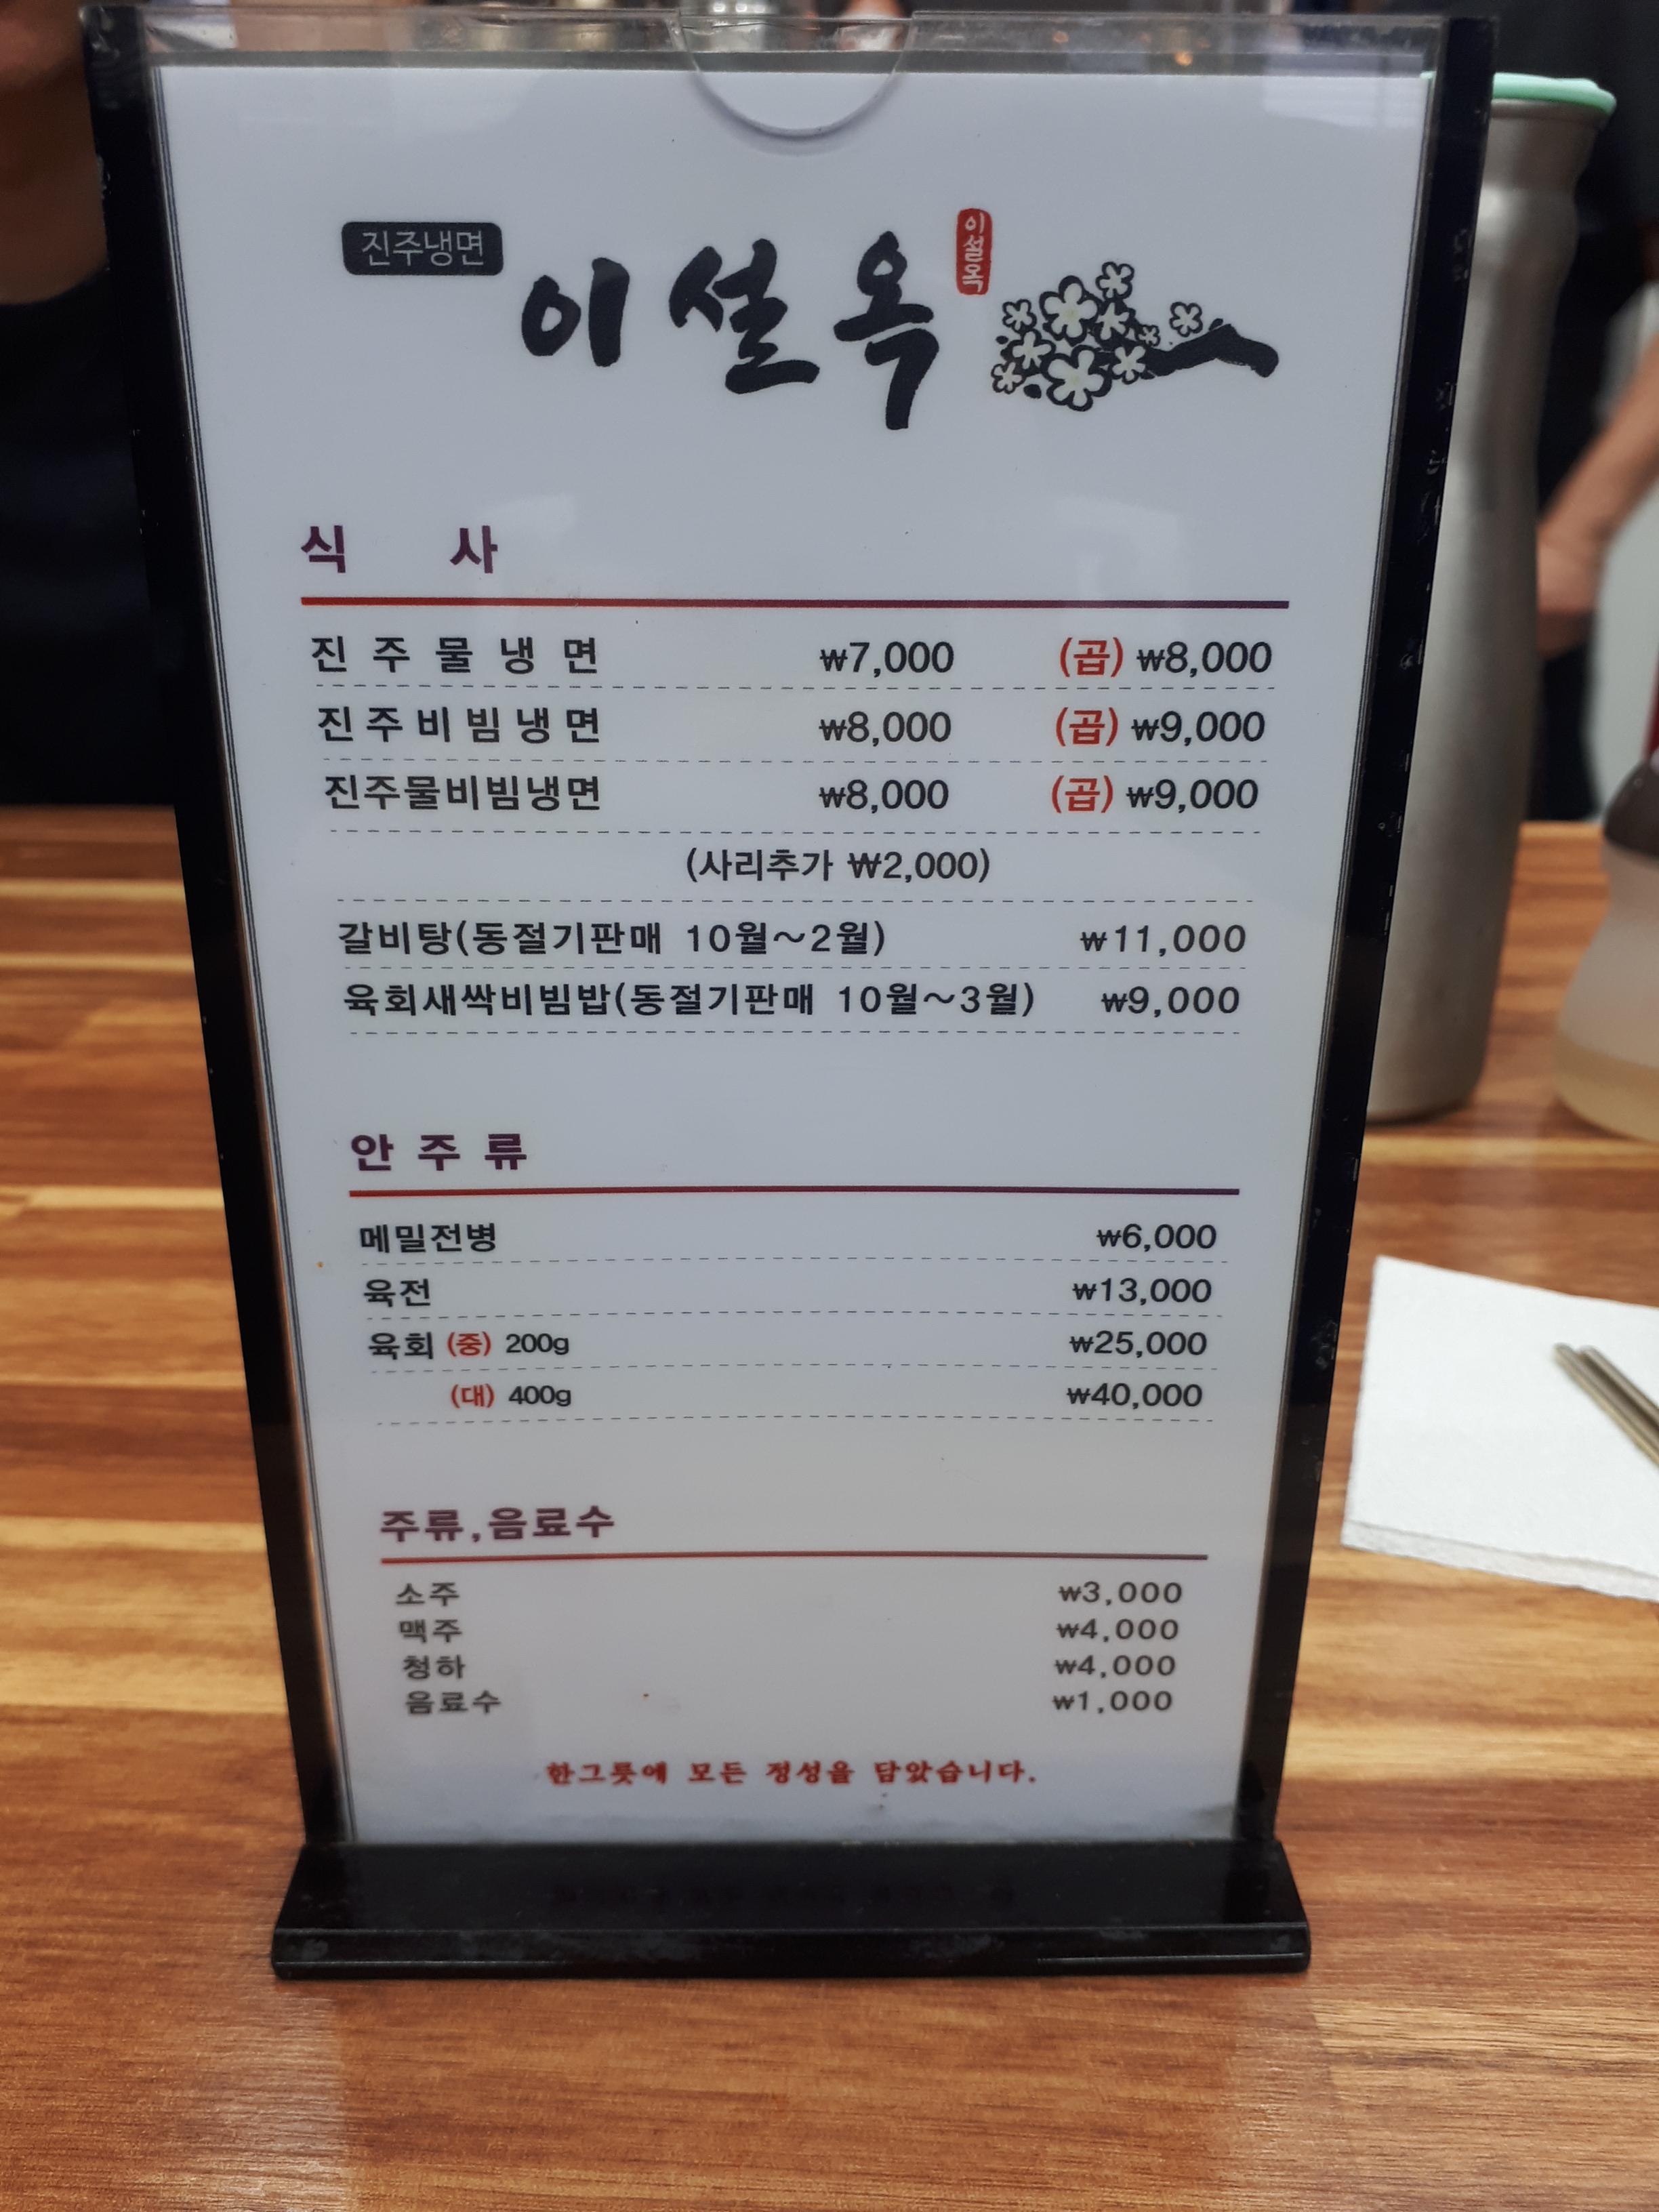 진주냉면
이설옥
이설옥
식 사
진주물냉면 ₩7,000 (곱) ₩8,000
진주비빔냉면 ₩8,000 (곱) ₩9,000
진주물비빔냉면 ₩8,000 (곱) ₩9,000
(사리추가 ₩2,000)
갈비탕(동절기판매 10월～2월) ₩11,000
육회새싹비빔밥(동절기판매 10월～3월) ₩9,000
안주류
메밀전병 ₩6,000
육전 ₩13,000
육회 (중) 200g ₩25,000
(대) 400g ₩40,000
주류,음료수
소주 ₩3,000
맥주 ₩4,000
청하 ₩4,000
음료수 ₩1,000
한그릇에 모든 정성을 담았습니다.